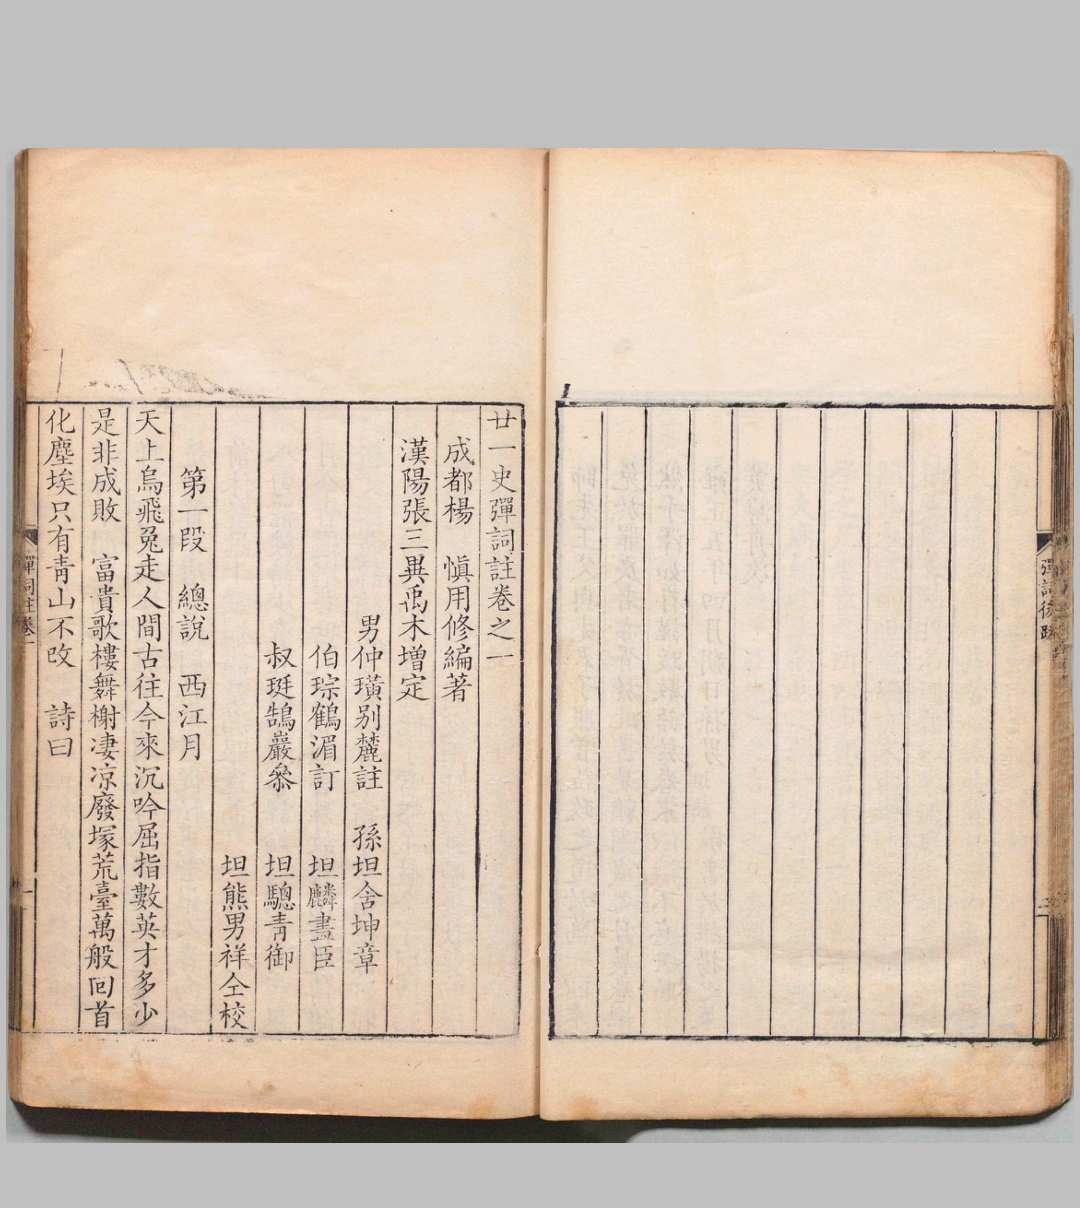 廿一史彈詞註卷之一
成都楊　慎用修編著
漢陽張三異禹木增定
男仲璜別麓註　孫坦舍坤章
伯琮鶴湄訂　坦麟畫臣
叔珽鵠巖叅　坦驄青御
坦熊男祥仝校
第一段　總說　西江月
天上烏飛兔走人間古往今來沉吟屈指數英才多少
是非成敗　富貴歌樓舞榭凄凉廢塚荒臺萬般回首
化塵埃只有青山不改　詩曰
彈詞註卷一
一